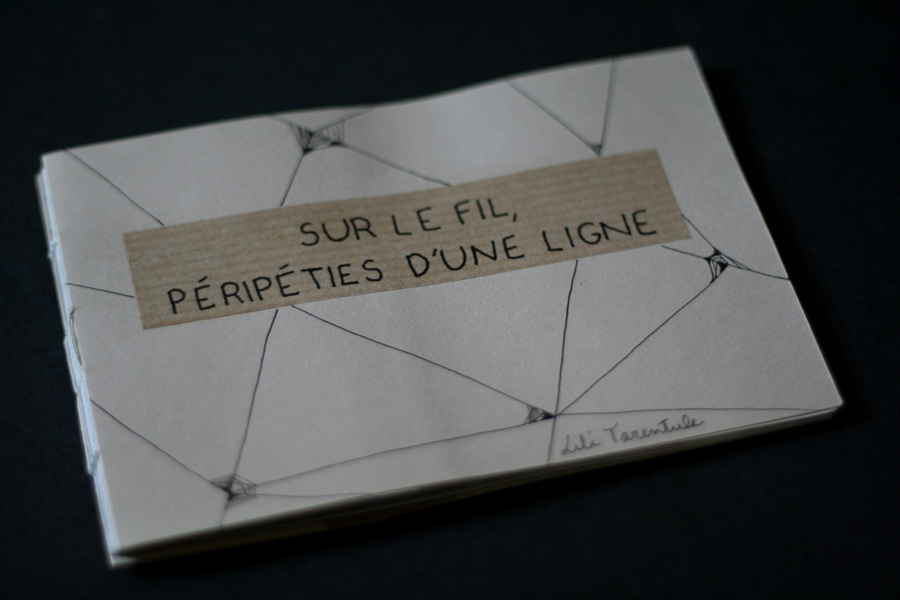 SUR LE FIL,
PÉRIPÉTIES D'UNE LIGNE
Lili Tarentule